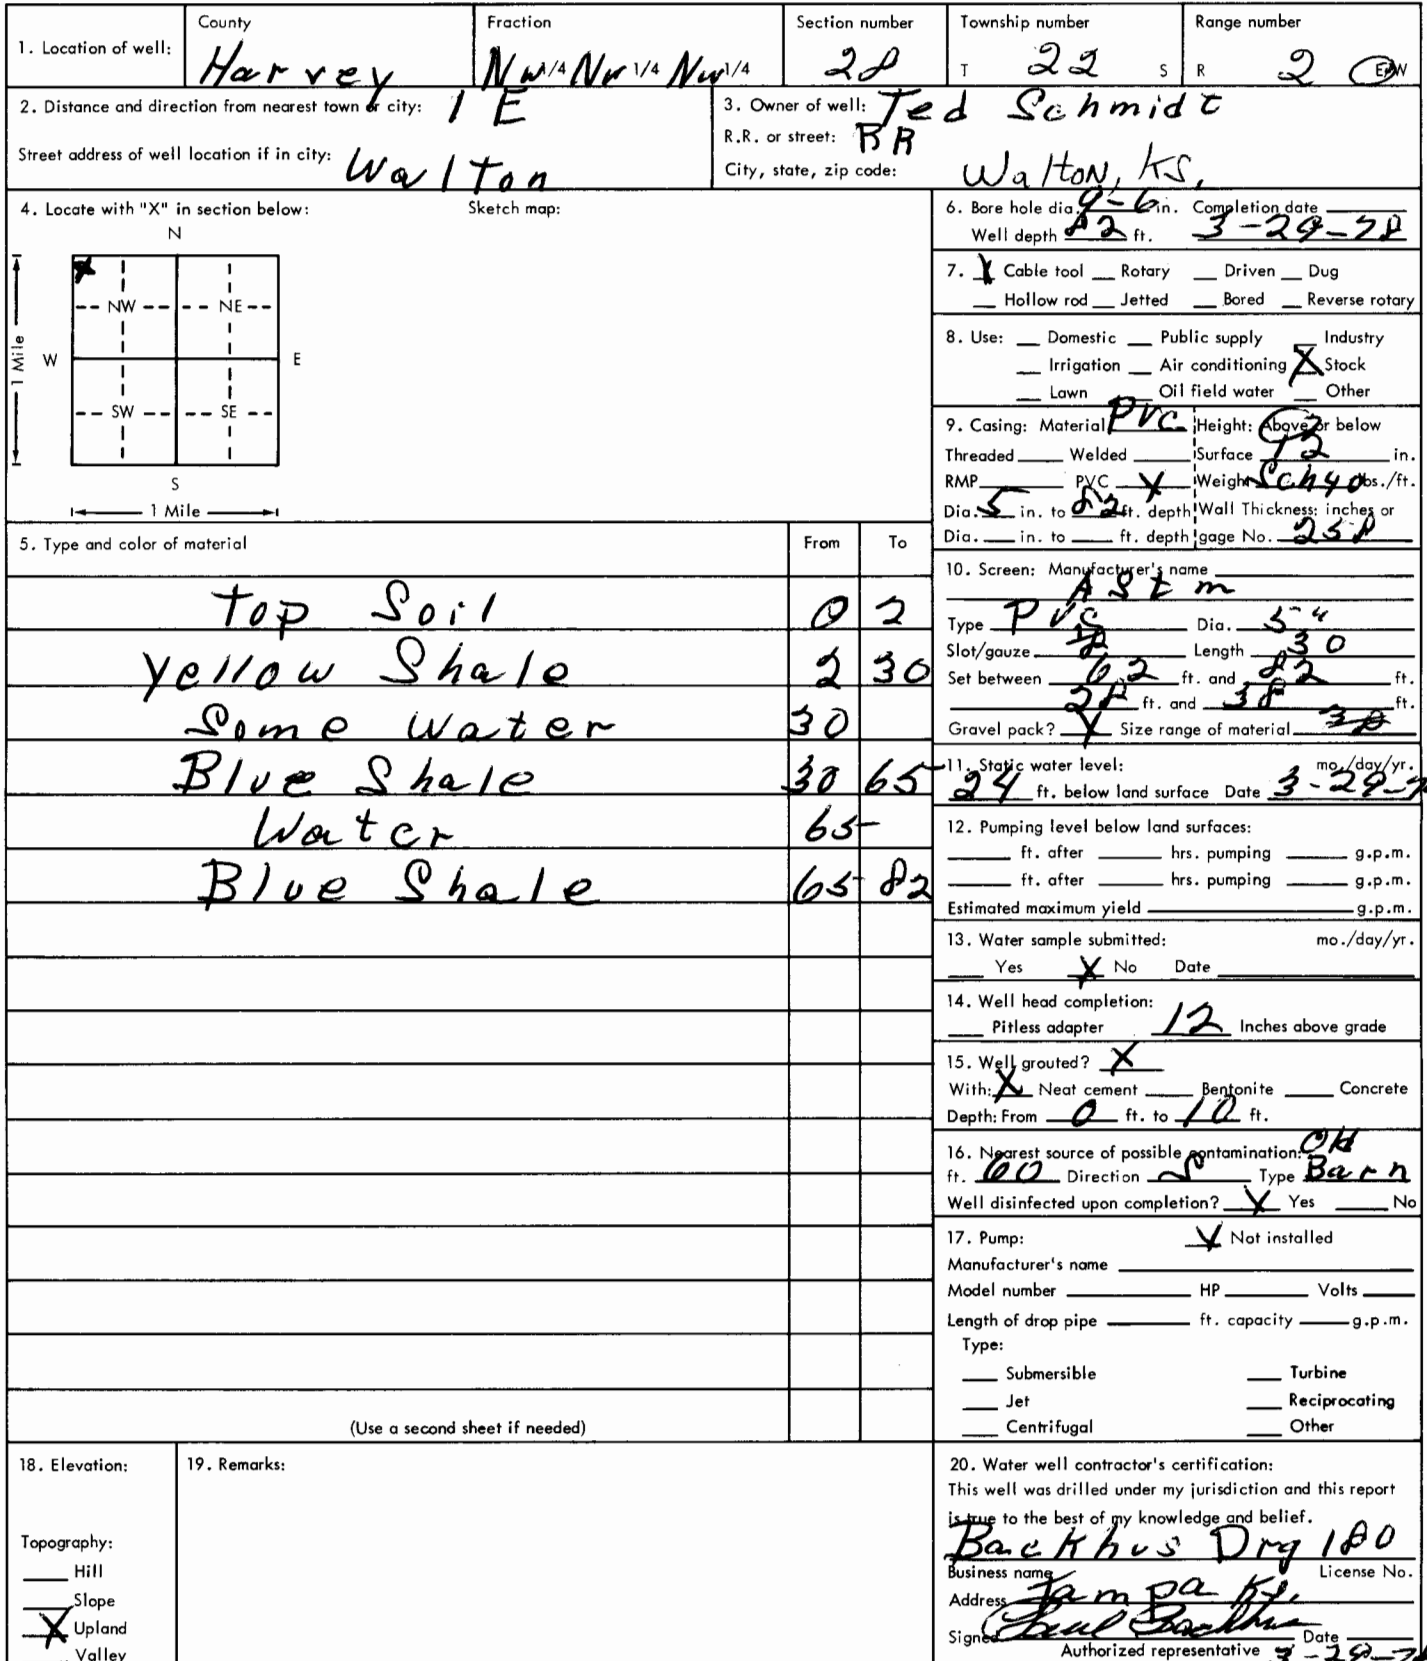 1. Location of well: County Harvey Fraction NW 1/4 NW 1/4 NW 1/4 Section number 28 Township number T 22 S Range number R 2 E/W
2. Distance and direction from nearest town or city: 1 E
Street address of well location if in city: Walton
3. Owner of well: Ted Schmidt
R.R. or street: RR
City, state, zip code: Walton, KS,
4. Locate with "X" in section below: Sketch map:
N
NW NE
W E
1 Mile
SW SE
S
1 Mile
6. Bore hole dia. 9-6 in. Completion date
Well depth 82 ft. 3-29-78
7. X Cable tool Rotary Driven Dug
Hollow rod Jetted Bored Reverse rotary
8. Use: Domestic Public supply Industry
Irrigation Air conditioning X Stock
Lawn Oil field water Other
9. Casing: Material PVC Height: Above or below
Threaded Welded Surface 12 in.
RMP PVC X Weight Sch 40 lbs./ft.
Dia. 5 in. to 82 ft. depth Wall Thickness: inches or
Dia. in. to ft. depth gage No. 258
5. Type and color of material From To
Top Soil 0 2
Yellow Shale 2 30
Some Water 30
Blue Shale 30 65
Water 65
Blue Shale 65 82
(Use a second sheet if needed)
10. Screen: Manufacturer's name
ASTm
Type PVC Dia. 5"
Slot/gauze Length 30
Set between 62 ft. and 82 ft.
28 ft. and 38 ft.
Gravel pack? X Size range of material
11. Static water level: mo./day/yr.
24 ft. below land surface Date 3-29-7
12. Pumping level below land surfaces:
ft. after hrs. pumping g.p.m.
ft. after hrs. pumping g.p.m.
Estimated maximum yield g.p.m.
13. Water sample submitted: mo./day/yr.
Yes X No Date
14. Well head completion:
Pitless adapter 12 Inches above grade
15. Well grouted? X
With: X Neat cement Bentonite Concrete
Depth: From 0 ft. to 10 ft.
16. Nearest source of possible contamination: Old
ft. 60 Direction S Type Barn
Well disinfected upon completion? X Yes No
17. Pump: X Not installed
Manufacturer's name
Model number HP Volts
Length of drop pipe ft. capacity g.p.m.
Type:
Submersible Turbine
Jet Reciprocating
Centrifugal Other
18. Elevation:
Topography:
Hill
Slope
X Upland
Valley
19. Remarks:
20. Water well contractor's certification:
This well was drilled under my jurisdiction and this report
is true to the best of my knowledge and belief.
Backhus Drg 180
Business name License No.
Address Tampa Ks.
Signed Paul Backhus Date
Authorized representative 3-29-78